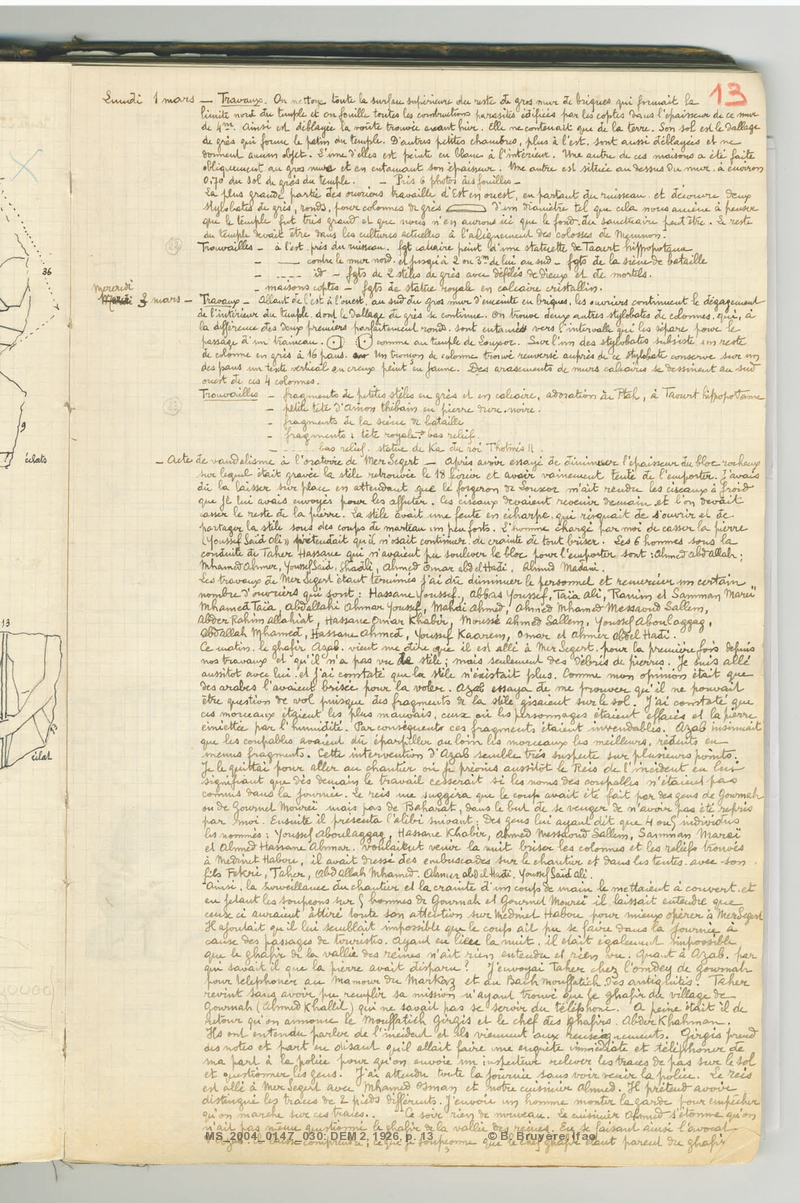 13
Lundi 1 mars — Travaux. On nettoie toute la surface supérieure du reste du gros mur de briques qui formait la
limite nord du temple et on fouille toutes les constructions parasites édifiées par les coptes dans l'épaisseur de ce mur
de 4m. Ainsi est déblayée la voûte trouvée avant hier. Elle ne contenait que de la terre. Son sol est le dallage
de grès qui forme le patin du temple. D'autres petites chambres, plus à l'est, sont aussi déblayées et ne
donnent aucun objet. L'une d'elles est peinte en blanc à l'intérieur. Une autre de ces maisons a été faite
obliquement au gros mur et en entamant son épaisseur. Une autre est située au dessus du mur à environ
0,70 du sol de grès du temple. — Pris 6 photos des fouilles —
La plus grande partie des ouvriers travaille d'Est en ouest, en partant du ruisseau et découvre deux
stylobates de grès, ronds, pour colonnes de grès d'un diamètre tel que cela nous amène à penser
que le temple fut très grand et que nous n'en aurons ici que le fond du sanctuaire peut être. Le reste
du temple devait être dans les cultures actuelles à l'alignement des colosses de Memnon.
Trouvailles — à l'est près du ruisseau. fgt calcaire peint d'une statuette de Taourt hippopotame
— contre le mur nord et jusqu'à 2 ou 3m de lui au sud — fgts de la scène de bataille
— id — fgts de 2 stèles de grès avec défilés de dieux et de mortels.
— maisons coptes — fgts de statue royale en calcaire cristallin.
Mercredi
3 mars — Travaux — Allant de l'est à l'ouest, au sud du gros mur d'enceinte en briques, les ouvriers continuent le dégagement
de l'intérieur du temple dont le dallage de grès se continue. On trouve deux autres stylobates de colonnes qui, à
la différence des deux premiers parfaitement ronds, sont entamés vers l'intervalle qui les sépare pour le
passage d'un traineau. comme au temple de Louxor. Sur l'un des stylobates subsiste un reste
de colonne en grès à 16 pans. Un tronçon de colonne trouvé renversé auprès de ce stylobate conserve sur un
des pans un texte vertical en creux peint en jaune. Des arasements de murs calcaires se dessinent au sud
ouest de ces 4 colonnes.
Trouvailles — fragments de petites stèles en grès et en calcaire, adoration à Ptah, à Taourt hippopotame
— petite tête d'Amon thébain en pierre dure noire.
— fragments de la scène de bataille
— fragments : tête royale bas relief.
— bas relief. statue de Ka du roi Thotmès II.
— Acte de vandalisme à l'oratoire de Mer Segert — Après avoir essayé de diminuer l'épaisseur du bloc rocheux
sur lequel était gravée la stèle retrouvée le 18 février et avoir vainement tenté de l'emporter. J'avais
dû la laisser sur place en attendant que le forgeron de Louxor m'ait rendu les ciseaux à froid
que je lui avais envoyés pour les affuter. Les ciseaux devaient revenir demain et l'on devait
casser le reste de la pierre. La stèle avait une fente en écharpe qui risquait de s'ouvrir et de
partager la stèle sous des coups de marteau un peu forts. L'homme chargé par moi de casser la pierre
(Youssef Saïd Ali) prétendait qu'il n'osait continuer de crainte de tout briser. Les 6 hommes sous la
conduite de Taher Hassane qui n'avaient pu soulever le bloc pour l'emporter sont : Ahmed abdallah ;
Mhamed Ahmer, Youssef Saïd, Ahmed Omar abd el Hadi, Ahmed Madani.
Les travaux de Mer Segert étant terminés j'ai dû diminuer le personnel et remercier un certain
nombre d'ouvriers qui sont : Hassane Youssef, Abbas Youssef, Taïa Ali, Ranim et Samman Mareï
Mhamed Taïa, Abdellahi Ahmar Youssef, Mahdi Ahmed, Ahmed Mhamed Messaoud Sallem,
Abder Rahim allakiat, Hassane Omar Khabir, Moussé Ahmed Sallem, Youssef Aboulaggag,
Abdallah Mhamed, Hassane Ahmed, Youssef Kaorem, Omar et Ahmer Abdel Hadi.
Ce matin, le ghafir Azab vient me dire que il est allé à Mer Segert pour la première fois depuis
nos travaux et qu'il n'a pas vu de stèle ; mais seulement des débris de pierres. Je suis allé
aussitot avec lui et j'ai constaté que la stèle n'existait plus. Comme mon opinion était que
des arabes l'avaient brisée pour la voler. Azab essaya de me prouver qu'il ne pouvait
être question de vol puisque des fragments de la stèle gisaient sur le sol. J'ai constaté que
ces morceaux étaient les plus mauvais, ceux où les personnages étaient effacés et la pierre
émiettée par l'humidité. Par conséquents ces fragments étaient invendables. Azab insinuait
que les coupables avaient dû éparpiller au loin les morceaux les meilleurs, réduits en
menus fragments. Cette intervention d'Azab semble très suspecte sur plusieurs points.
Je le quittai pour aller au chantier où je prévins aussitot le Reis de l'incident en lui
signifiant que dès demain le travail cesserait si les noms des coupables n'étaient pas
connus dans la journée. Le reis me suggéra que le coup avait été fait par des gens de Gournah
ou de Gournet Moureï mais pas de Baharat, dans le but de se venger de n'avoir pas été repris
par moi. Ensuite il présenta l'alibi suivant : Des gens lui ayant dit que 4 ou 5 individus
les nommés : Youssef Aboulaggag, Hassane Khabir, Ahmed Messaoud Sallem, Samman Mareï
et Ahmed Hassane Ahmar. voulaient venir la nuit briser les colonnes et les reliefs trouvés
à Médinet Habou, il avait dressé des embuscades sur le chantier et dans les tentes avec son
fils Fekri, Taher, Abd Allah Mhamed. Ahmar abd el Hadi. Youssef Saïd Ali.
Ainsi, la surveillance du chantier et la crainte d'un coup de main le mettaient à couvert et
en jetant les soupçons sur 5 hommes de Gournah et Gournet Moureï il laissait entendre que
ceux ci auraient attiré toute son attention sur Médinet Habou pour mieux opérer à Mer Segert
Il ajoutait qu'il lui semblait impossible que le coup ait pu se faire dans la journée à
cause des passages de touristes. Ayant eu lieu la nuit, il était également impossible
que le ghafir de la vallée des reines n'ait rien entendu et rien vu. Quant à Azab, par
qui savait il que la pierre avait disparu ? J'envoyai Taher chez l'omdey de Gournah
pour téléphoner au Mamour du Markaz et au Bach Mouffatich des antiquités. Taher
revint sans avoir pu remplir sa mission n'ayant trouvé que le ghafir du village de
Gournah (Ahmed Khallil) qui ne savait pas se servir du téléphone. A peine était il de
retour qu'on annonce le Mouffatich Girgis et le chef des ghafirs Abder Rhahman.
Ils ont entendu parler de l'incident et ils viennent aux renseignements. Girgis prend
des notes et part en disant qu'il allait faire une enquête immédiate et téléphoner de
ma part à la police pour qu'on envoie un inspecteur relever les traces de pas sur le sol
et questionner les gens. J'ai attendu toute la journée sans voir venir la police. Le reis
est allé à Mer Segert avec Mhamed Osman et notre cuisinier Ahmed. Il prétend avoir
distingué les traces de 2 pieds différents. J'envoie un homme monter la garde pour empêcher
qu'on marche sur ces traces. Le soir rien de nouveau. Le cuisinier Ahmed s'étonne qu'on
n'ait pas même questionné le ghafir de la vallée des reines. En se faisant ainsi l'avocat
que je soupçonne que le ghafir étant parent du ghafir
MS_2004_0147_030: DEM 2, 1926, p. 13 © B. Bruyère, Ifao
36
9
éclats
13
éclat